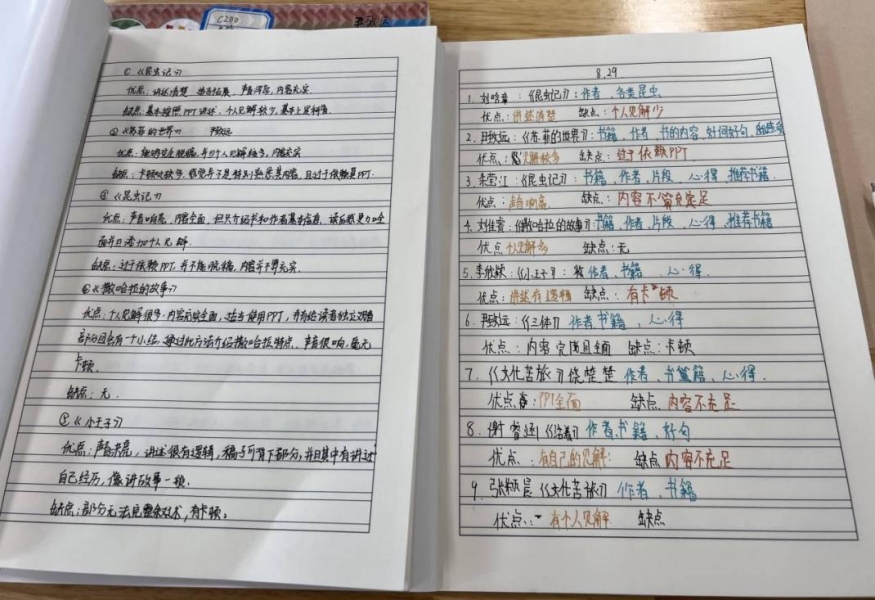 C210
C 《昆虫记》
优点：讲述清楚，适当拓展，声音洪亮，内容充实
缺点：基本按照PPT讲述，个人见解较少，基本上是科普。
② 《苏菲的世界》 尹致远
优点：能够完全脱稿，并加个人见解，内容充实
缺点：卡顿次数较多，感觉并不是特别熟悉其内容，且过于依赖PPT.
③ 《昆虫记》
优点：声音响亮，内容全面，但只介绍书和作者基本信息，读后感更加全
面并且添加个人见解
缺点：过于依赖PPT，并不能脱稿，内容并不算充实.
④ 《撒哈拉的故事》
优点：个人见解很多，内容充实全面，适当使用PPT，并有给读者
部分且会有一个小结，通过此方法介绍撒哈拉特点，声音很响，毫无
卡顿.
缺点：无.
⑤ 《小王子》
优点：声音洪亮，讲述很有逻辑，稿子可背下部分，并且其中有讲述
自己经历，像讲故事一般.
缺点：部分无法完整叙述，有卡顿。
8.29
1. 《昆虫记》：作者、各类昆虫
优点：讲述清楚 缺点：个人见解少
2. 尹致远：《苏菲的世界》：书籍、作者、书的内容、好词好句、
优点：见解较多 缺点：过于依赖PPT
3. 《昆虫记》：书籍、作者、片段、心得、推荐书籍
优点：声音响亮 缺点：内容不算充足
4. 刘佳睿：《撒哈拉的故事》：书籍、作者、片段、心得、推荐书籍
优点 个人见解多 缺点：无
5. 李欣颖：《小王子》：作者、书籍、心得.
优点：讲述有逻辑 缺点：有卡顿
6. 尹致远：《三体》作者、书籍、心得
优点：内容完浅且全面 缺点：卡顿
7. 《文化苦旅》饶楚楚 作者、书籍、心得.
优点：PPT全面 缺点 内容不充足
8. 谢睿涵《活着》作者、书籍、好句
优点：有自己的见解 缺点 内容不充足
9. 张颖晨《文化苦旅》作者、书籍
优点：有个人见解 缺点